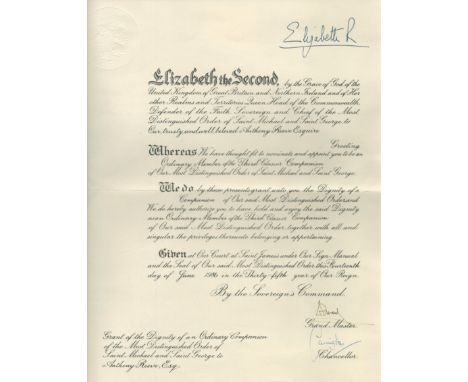 Elizabeth R
Elizabeth the Second, by the Grace of God of the
United Kingdom of Great Britain and Northern Ireland and of Her
other Realms and Territories Queen Head of the Commonwealth,
Defender of the Faith Sovereign and Chief of the Most
Distinguished Order of Saint Michael and Saint George to
Our trusty and well beloved Anthony Reeve Esquire
Greeting
Whereas We have thought fit to nominate and appoint you to be an
Ordinary Member of the Third Class or Companion
of Our Most Distinguished Order of Saint Michael and Saint George
We do by these presents grant unto you the Dignity of a
Companion of Our said Most Distinguished Order and
We do hereby authorise you to have hold and enjoy the said Dignity
as an Ordinary Member of the Third Class or Companion
of Our said Most Distinguished Order together with all and
singular the privileges thereunto belonging or appertaining.
Given at Our Court at Saint James's under Our Sign Manual
and the Seal of Our said Most Distinguished Order this Fourteenth
day of June 1986 in the Thirty-fifth year of Our Reign.
By the Sovereign's Command.
Grand Master.
Chancellor.
Grant of the Dignity of an Ordinary Companion
of the Most Distinguished Order of
Saint Michael and Saint George to
Anthony Reeve, Esq.